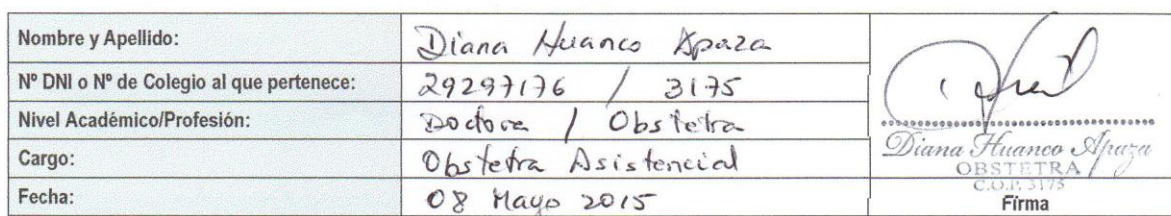 Nombre y Apellido: Diana Huanco Apaza
Nº DNI o Nº de Colegio al que pertenece: 29297176 / 3175
Nivel Académico/Profesión: Doctora / Obstetra
Cargo: Obstetra Asistencial
Fecha: 08 Mayo 2015
Diana Huanco Apaza
OBSTETRA
C.O.P. 3175
Firma